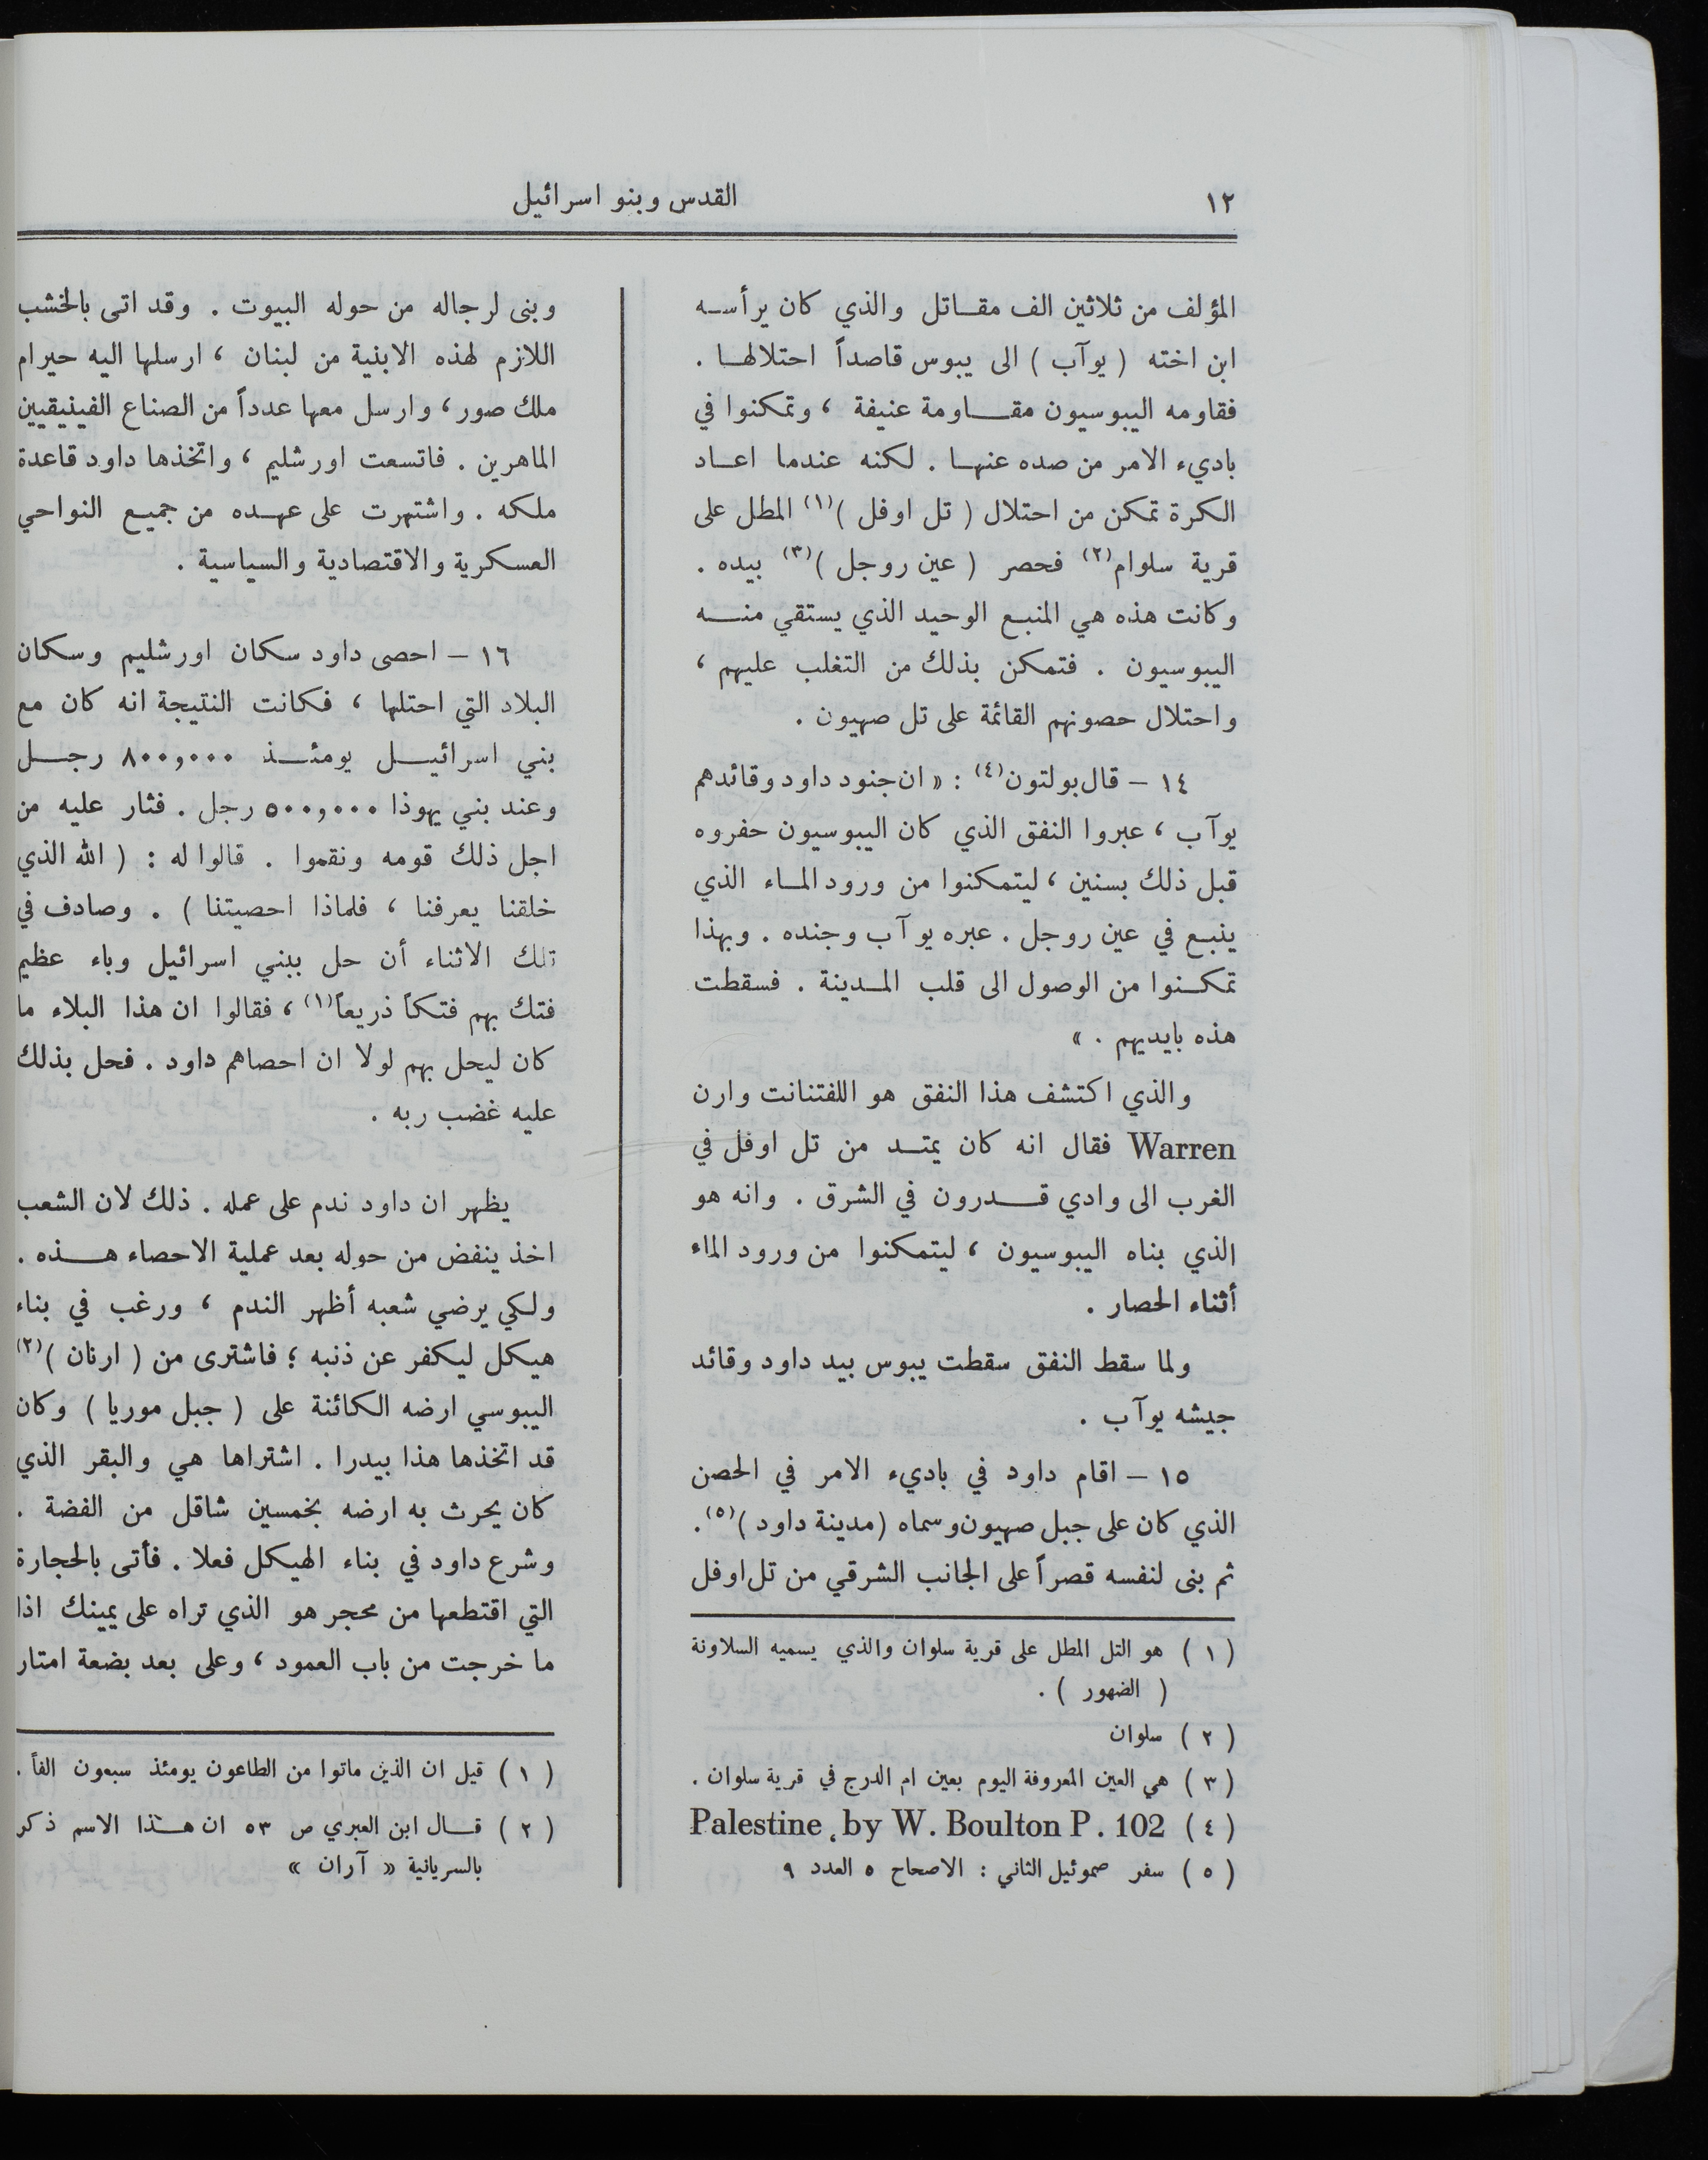 ١٢
القدس وبنو اسرائيل
المؤلف من ثلاثين الف مقاتل والذي كان يرأسه
ابن اخته ( يوآب ) الى يبوس قاصداً احتلالها .
فقاومه اليبوسيون مقاومة عنيفة ، وتمكنوا في
باديء الامر من صده عنها . لكنه عندما اعاد
الكرة تمكن من احتلال ( تل اوفل )(١) المطل على
قرية سلوام(٢) فحصر ( عين روجل )(٣) بيده .
وكانت هذه هي المنبع الوحيد الذي يستقي منه
اليبوسيون . فتمكن بذلك من التغلب عليهم ،
واحتلال حصونهم القائمة على تل صهيون .
١٤ – قال بولتون(٤) : « ان جنود داود وقائدهم
يوآب ، عبروا النفق الذي كان اليبوسيون حفروه
قبل ذلك بسنين ، ليتمكنوا من ورود الماء الذي
ينبع في عين روجل . عبره يوآب وجنده . وبهذا
تمكنوا من الوصول الى قلب المدينة . فسقطت
هذه بايديهم . »
والذي اكتشف هذا النفق هو اللفتنانت وارن
Warren فقال انه كان يمتد من تل اوفل في
الغرب الى وادي قدرون في الشرق . وانه هو
الذي بناه اليبوسيون ، ليتمكنوا من ورود الماء
أثناء الحصار .
ولما سقط النفق سقطت يبوس بيد داود وقائد
جيشه يوآب .
١٥ – اقام داود في باديء الامر في الحصن
الذي كان على جبل صهيون وسماه ( مدينة داود )(٥).
ثم بنى لنفسه قصراً على الجانب الشرقي من تل اوفل
( ١ ) هو التل المطل على قرية سلوان والذي يسميه السلاونة
( الضهور ) .
( ٢ ) سلوان
( ٣ ) هي العين المعروفة اليوم بعين ام الدرج في قرية سلوان .
( ٤ ) Palestine, by W. Boulton P. 102
( ٥ ) سفر صموئيل الثاني : الاصحاح ٥ العدد ٩
وبنى لرجاله من حوله البيوت . وقد اتى بالخشب
اللازم لهذه الابنية من لبنان ، ارسلها اليه حيرام
ملك صور ، وارسل معها عدداً من الصناع الفينيقيين
الماهرين . فاتسعت اورشليم ، واتخذها داود قاعدة
ملكه . واشتهرت على عهده من جميع النواحي
العسكرية والاقتصادية والسياسية .
١٦ – احصى داود سكان اورشليم وسكان
البلاد التي احتلها ، فكانت النتيجة انه كان مع
بني اسرائيل يومئذ ٨٠٠,٠٠٠ رجل
وعند بني يهوذا ٥٠٠,٠٠٠ رجل . فثار عليه من
اجل ذلك قومه ونقموا . قالوا له : ( الله الذي
خلقنا يعرفنا ، فلماذا احصيتنا ) . وصادف في
تلك الاثناء أن حل ببني اسرائيل وباء عظيم
فتك بهم فتكاً ذريعاً(١) ، فقالوا ان هذا البلاء ما
كان ليحل بهم لولا ان احصاهم داود . فحل بذلك
عليه غضب ربه .
يظهر ان داود ندم على عمله . ذلك لان الشعب
اخذ ينفض من حوله بعد عملية الاحصاء هذه .
ولكي يرضي شعبه أظهر الندم ، ورغب في بناء
هيكل ليكفر عن ذنبه ؛ فاشترى من ( ارنان )(٢)
اليبوسي ارضه الكائنة على ( جبل موريا ) وكان
قد اتخذها هذا بيدرا . اشتراها هي والبقر الذي
كان يحرث به ارضه بخمسين شاقل من الفضة .
وشرع داود في بناء الهيكل فعلا . فأتى بالحجارة
التي اقتطعها من محجر هو الذي تراه على يمينك اذا
ما خرجت من باب العمود ، وعلى بعد بضعة امتار
( ١ ) قيل ان الذين ماتوا من الطاعون يومئذ سبعون الفاً .
( ٢ ) قال ابن العبري ص ٥٣ ان هذا الاسم ذكر
بالسريانية « آران »